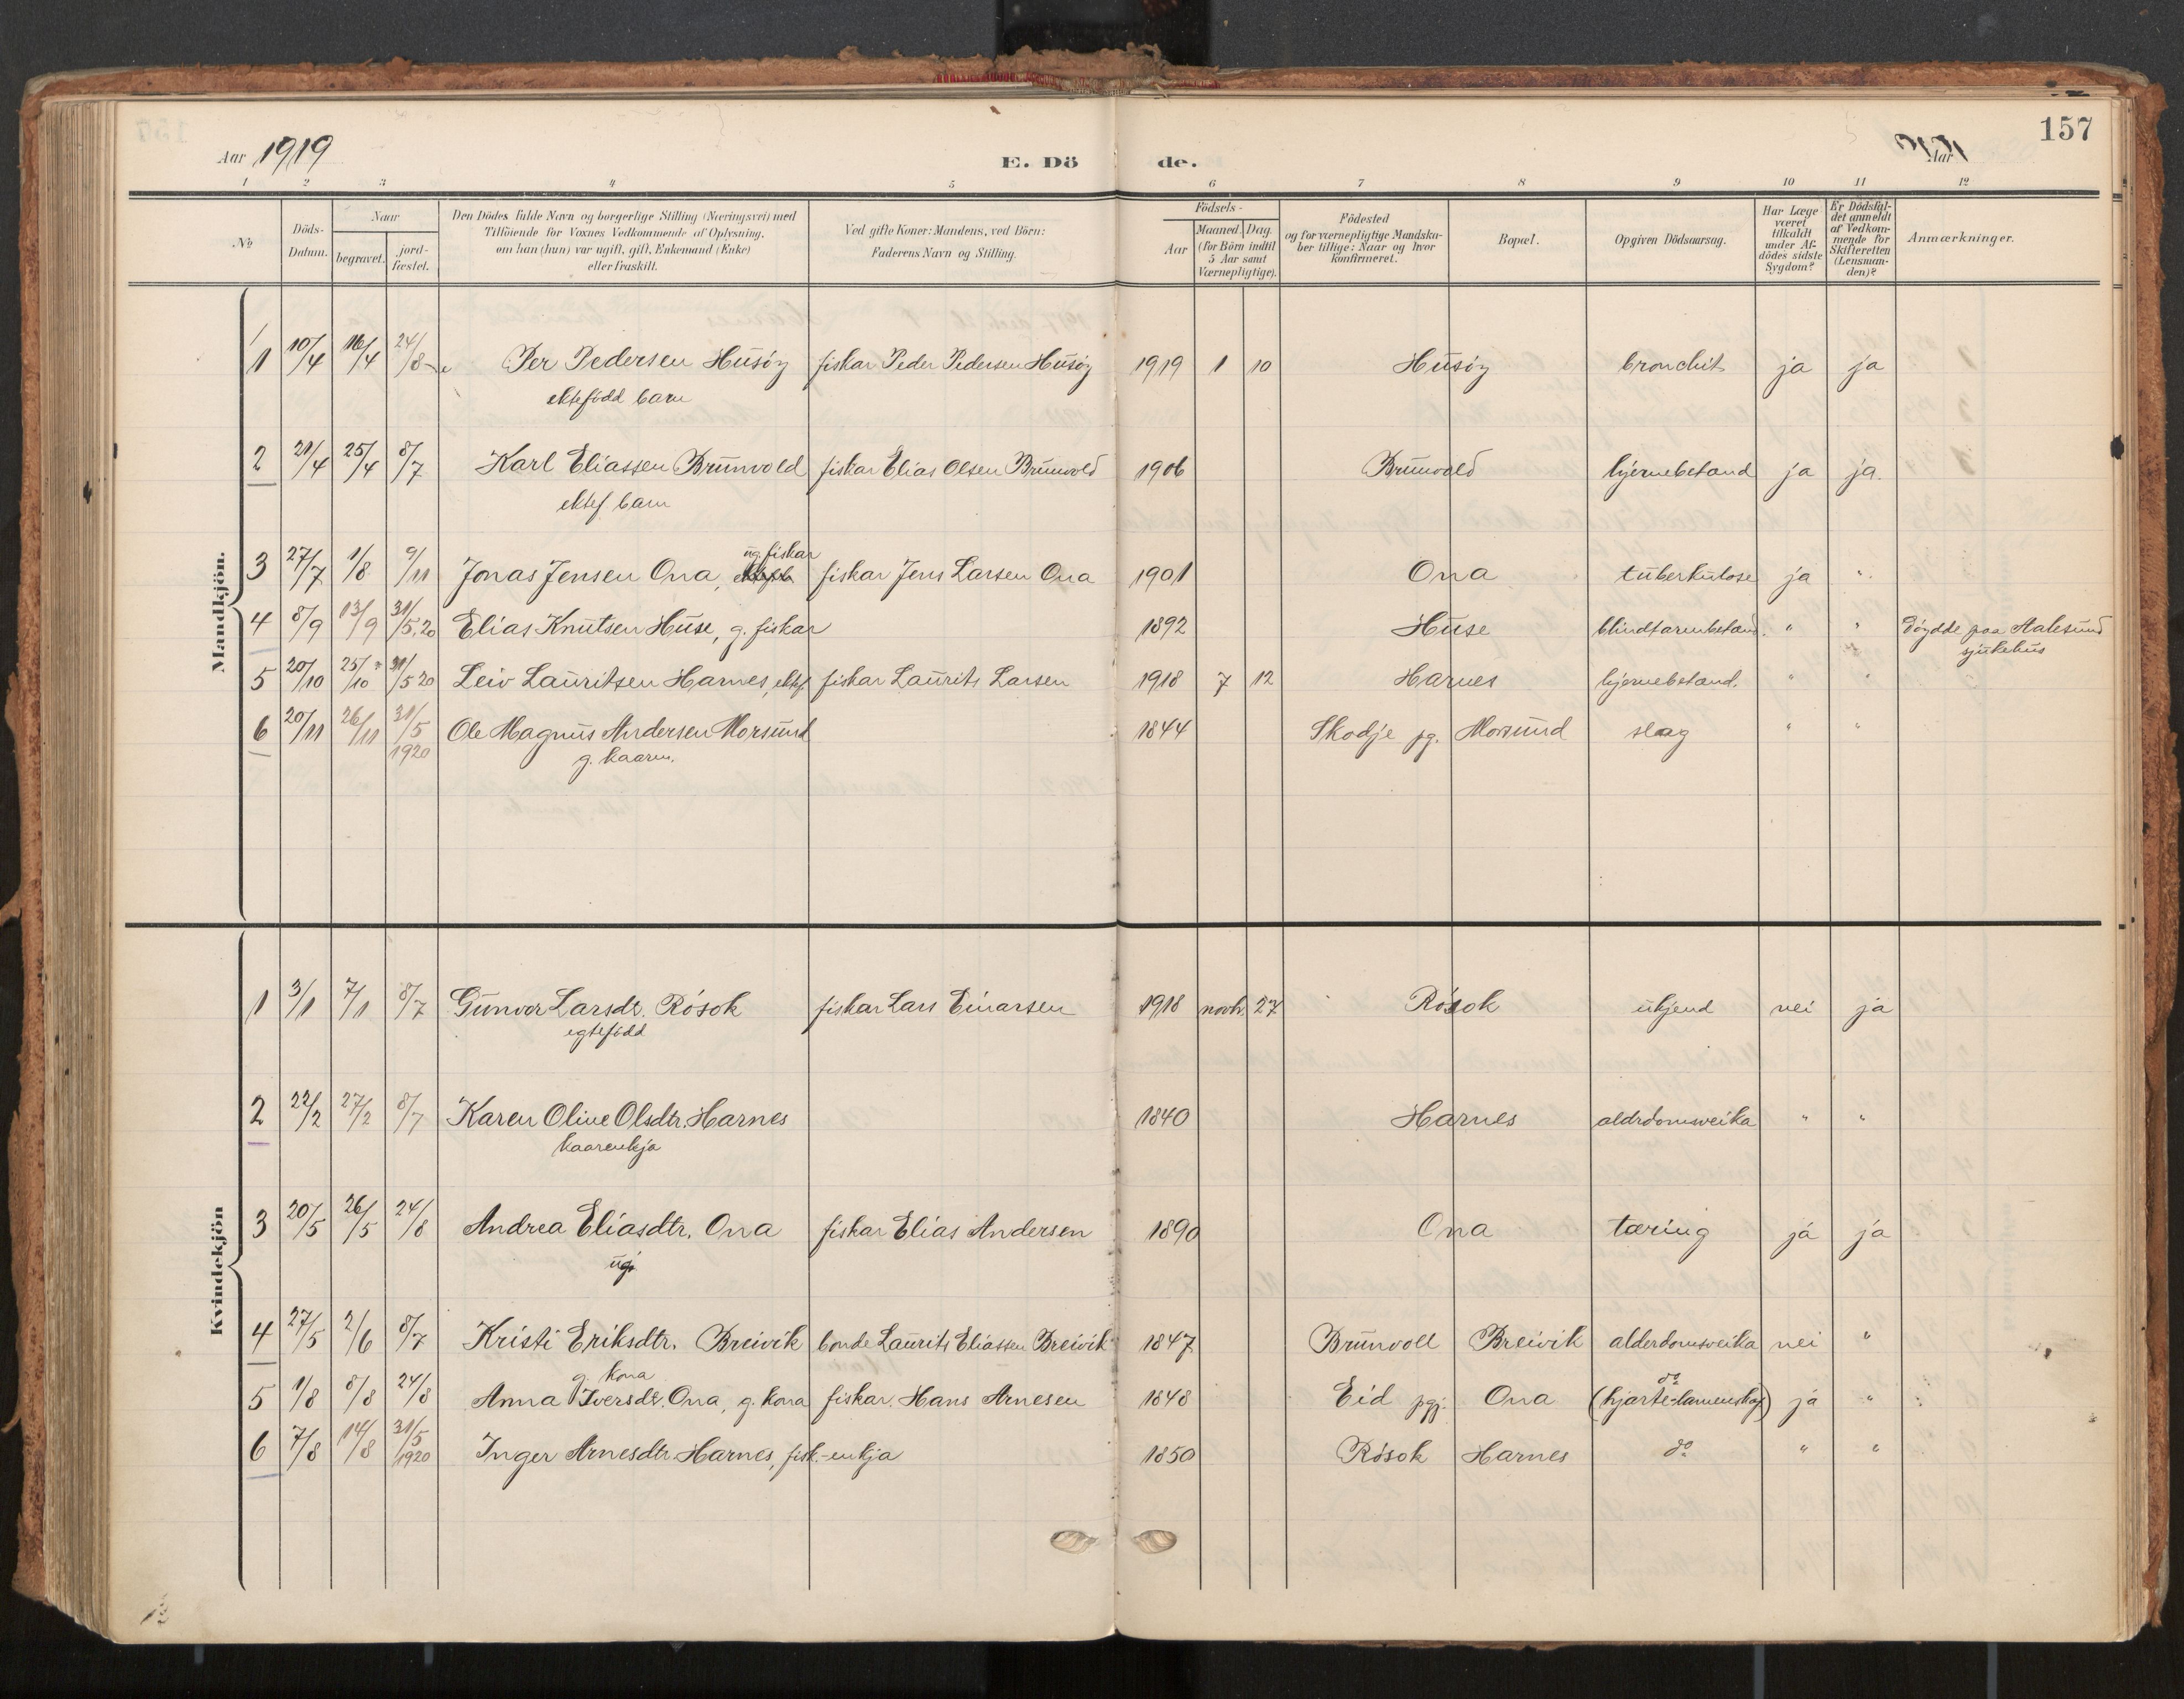 157
Aar 1919
E. Dö de.
Aar 1919
1 2 3 4 5 6 7 8 9 10 11 12
No
Döds-Datum.
Naar
begravet.
jord-fæstet.
Den Dödes fulde Navn og borgerlige Stilling (Næringsvei) med
Tilföiende for Voxnes Vedkommende af Oplysning,
om han (hun) var ugift, gift, Enkemand (Enke)
eller fraskilt.
Ved gifte Koner: Mandens, ved Börn:
Faderens Navn og Stilling.
Födsels-
Aar
Maaned. Dag.
(for Börn indtil
5 Aar samt
Værnepligtige).
Födested
og for værnepligtige Mandska-
ber tillige: Naar og hvor
konfirmeret.
Bopæl.
Opgiven Dödsaarsag.
Har Læge
været
tilkaldt
under Af-
dödes sidste
Sygdom?
Er Dödsfal-
det anmeldt
af Vedkom-
mende for
Skifteretten
(Lensman-
den)?
Anmærkninger.
Mandkjön.
1 10/4 16/4 24/8 Per Pedersen Husöy fiskar Peder Pedersen Husöy 1919 1 10 Husöy bronchit ja ja
ektefödd barn
2 21/4 25/4 8/7 Karl Eliassen Brunvold fiskar Elias Olsen Brunvold 1906 Brunvold hjernebetand ja ja.
ektef. barn
ug. fiskar
3 27/7 1/8 9/11 Jonas Jensen Ona, fiskar Jens Larsen Ona 1901 Ona tuberkulose ja "
4 8/9 13/9 31/5.20 Elias Knutsen Huse, g. fiskar 1892 Huse blindtarmbetand. " " döydde paa Aalesund
sjukehus
5 20/10 25/10 31/5 20 Leiv Lauritsen Harnes, ektef. fiskar Laurits Larsen 1918 7 12 Harnes hjernebetand. " "
6 20/11 26/11 31/5 1920 Ole Magnus Andersen Morsund 1844 Skodje pg. Morsund slag " "
g. kaarm.
Kvindekjön
1 3/1 7/1 8/7 Gunvor Larsdr. Rösok fiskar Lars Einarsen 1918 novbr. 27 Rösok ukjend nei ja
egtefödd
2 22/2 27/2 8/7 Karen Oline Olsdtr. Harnes 1840 Harnes aldrdomsveika " "
kaarenkja
3 20/5 26/5 24/8 Andrea Eliasdtr. Ona fiskar Elias Andersen 1890 Ona tæring ja ja
ug.
4 27/5 2/6 8/7 Kristi Eriksdtr. Breivik bonde Laurits Eliassen Breivik 1847 Brunvoll Breivik alderdomsveika nei "
g. kona
5 1/8 8/8 24/8 Anna Iversdr. Ona, g. kona fiskar. Hans Arnesen 1848 Eid pgj. Ona do (hjarte-lamenskap) ja "
6 7/8 14/8 31/5 1920 Inger Arnesdtr. Harnes, fisk.-enkja 1850 Rösok Harnes do " "